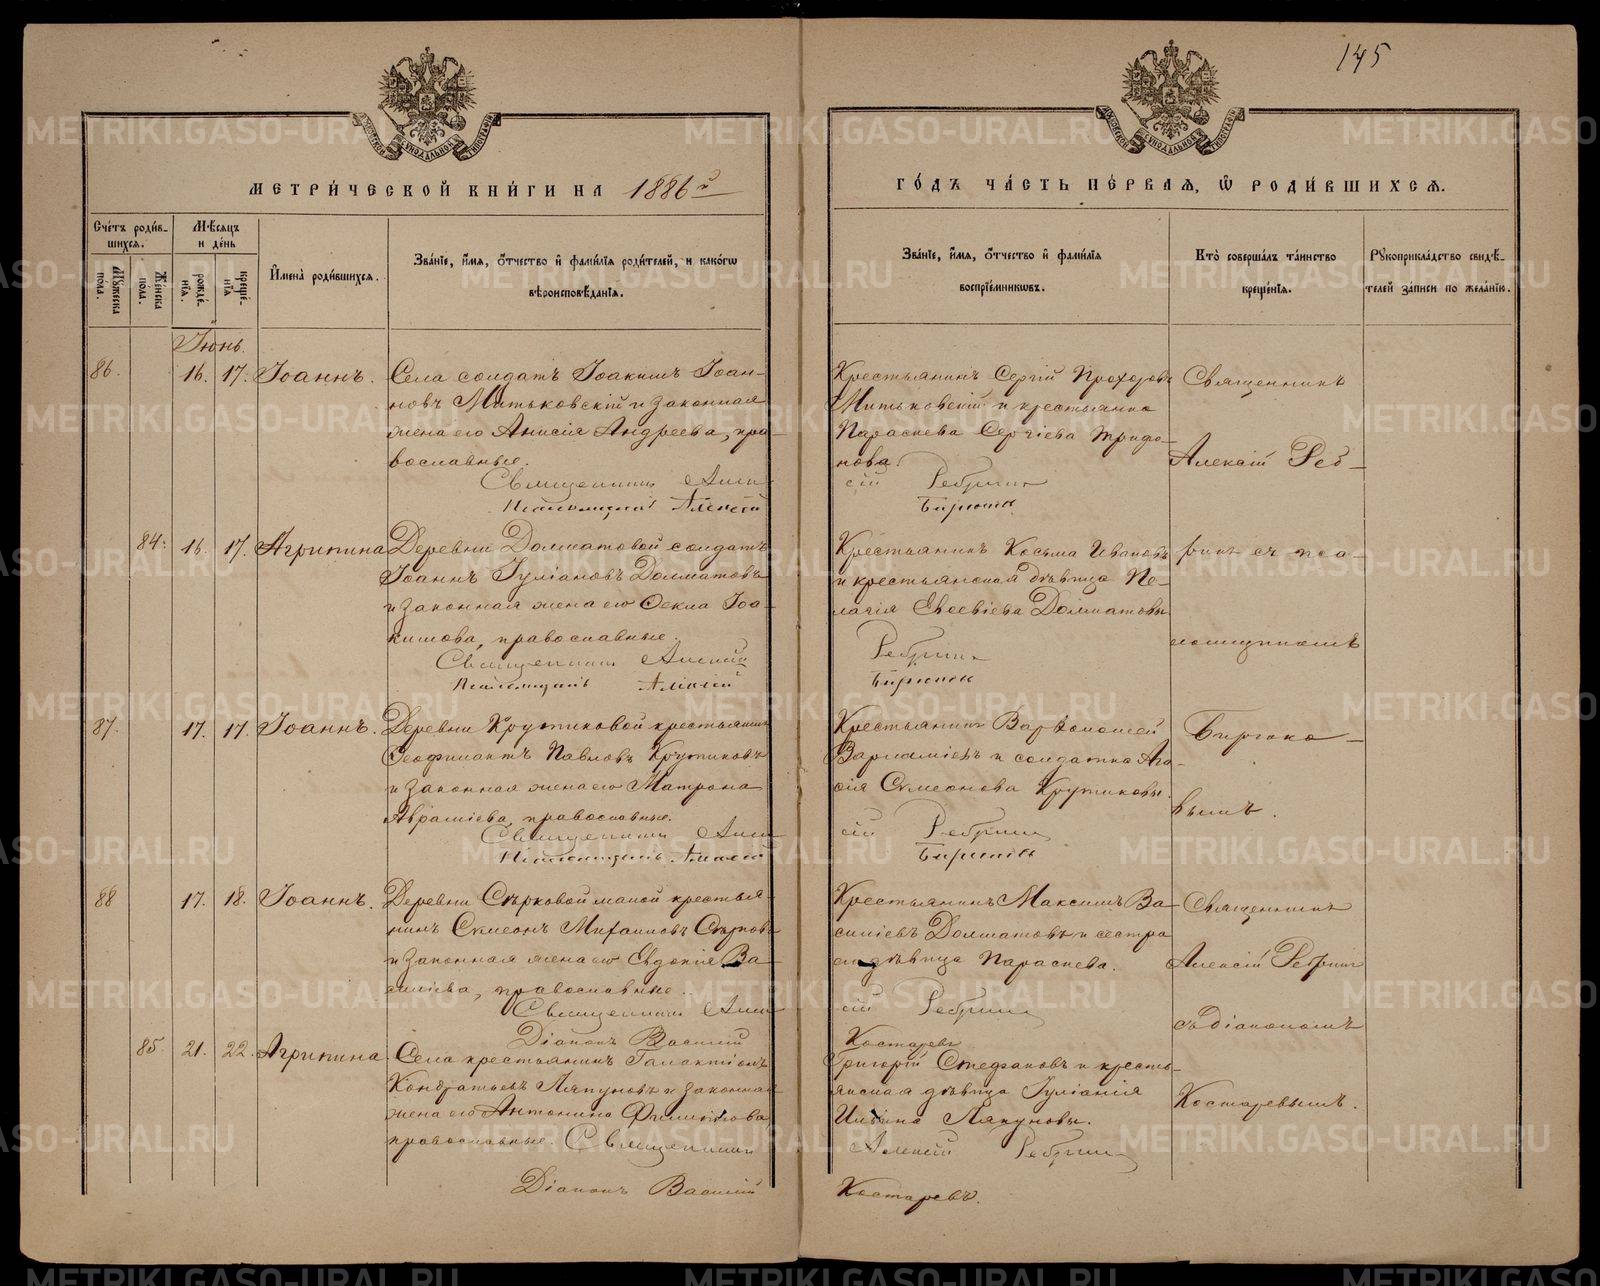 145
МЕТРИ́ЧЕСКОЙ КНИ́ГИ НА 1886й
ГО́ДЪ ЧА́СТЬ ПЕ́РВАЯ, Ѿ РОДИ́ВШИХСЯ.
Сче́тъ роди́в-
шихся.
Мужеска пола.
Женска пола.
Мѣсяцъ и де́нь
рожде́нїя.
креще́нїя
И҆мена̀ роди́вшихся.
Зва́нїе, и҆́мя, ѻ҆́тчество и҆ фами́лїя роди́телей, и како́гѡ
вѣроисповѣ́данїя.
Зва́нїе, и҆́мя, ѻ҆́тчество и҆ фами́лїя
воспрїе́мникѡвъ.
Кто̀ соверша́лъ та́инство
креще́нїя.
Рꙋкоприкла́дство свидѣ́-
телей за́писи по жела́нїю.
Іюнь.
86.
16. 17.
Іоаннъ.
Села солдатъ Іоакимъ Іоан-
новъ Митьковскій и законная
жена его Анисія Андреева, пра-
вославные.
Священникъ Алек
Псаломщикъ Алексій
Крестьянинъ Сергій Прохоровъ
Митьковскій и крестьянка
Параскева Сергіева Трифо-
нова.
сій Ребринъ
Бирюковъ
Священникъ
Алексій Реб-
84.
16. 17.
Агрипина
Деревни Долматовой солдатъ
Іоаннъ Іуліановъ Долматовъ
и законная жена его Ѳекла Іоа-
кимова, православные.
Священникъ Алексій
Псаломщикъ Алексій
Крестьянинъ Косьма Ивановъ
и крестьянская дѣвица Пе-
лагія Евсевіева Долматовы
Ребринъ
Бирюковъ
ринъ съ пса-
ломщикомъ
87.
17. 17.
Іоаннъ.
Деревни Крутиковой крестьянинъ
Ѳеофилактъ Павловъ Крутиковъ
и законная жена его Матрона
Авраміева, православные.
Священникъ Алек
Псаломщикъ Алексій
Крестьянинъ Варѳоломей
Варламіевъ и солдатка Ага-
ѳія Сѵмеонова Крутиковы.
сій Ребринъ
Бирюковъ
Бирюко-
вымъ.
88
17. 18.
Іоаннъ.
Деревни Сѣрковой малой крестья-
нинъ Сѵмеонъ Михаиловъ Сѣрковъ
и законная жена его Евдокія Ва-
силіева, православные.
Священникъ Алек
Діаконъ Василій
Крестьянинъ Максимъ Ва-
силіевъ Долматовъ и сестра
его дѣвица Параскева.
сій Ребринъ
Костаревъ
Священникъ
Алексій Ребринъ
съ діакономъ
85.
21. 22.
Агрипина
Села крестьянинъ Галактіонъ
Кондратьевъ Ляпуновъ и законная
жена его Антонина Филиппова
православные. Священникъ
Діаконъ Василій
Григорій Стефановъ и кресть-
янская дѣвица Іуліанія
Ильина Ляпуновы.
Алексій Ребринъ
Костаревъ.
Костаревымъ.
METRIKI.GASO-URAL.RU